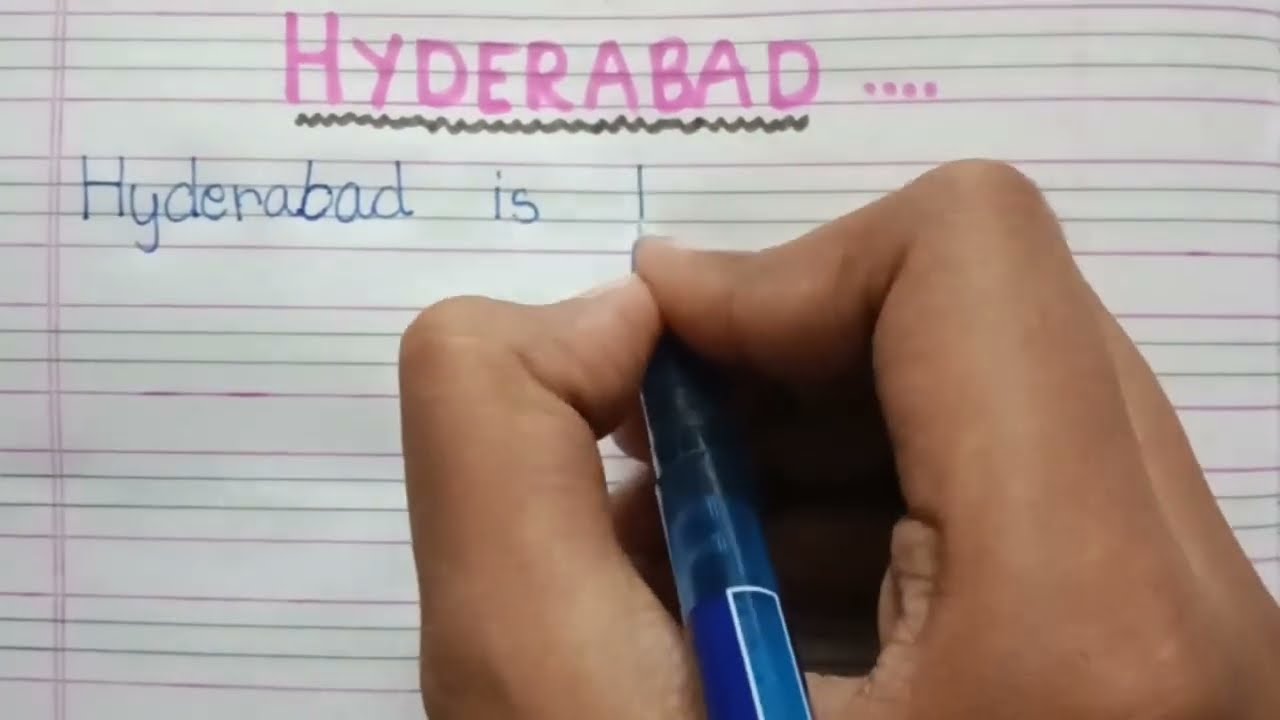 HYDERABAD ....
Hyderabad is